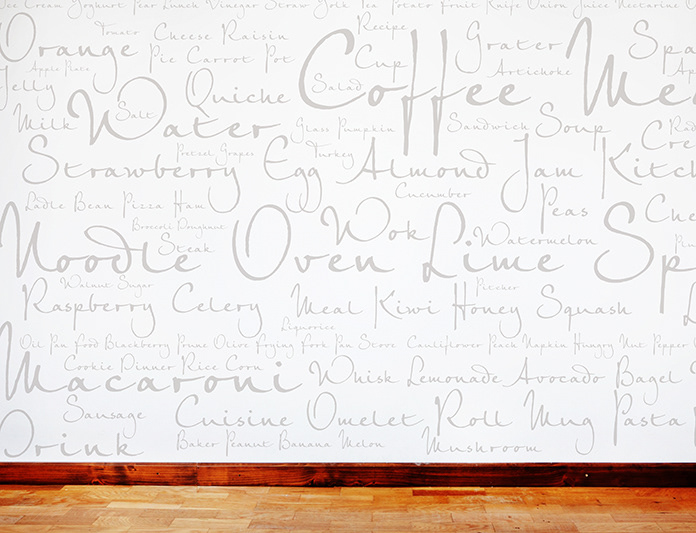 Ice Cream Yoghurt Pear Lunch Vinegar Straw Jolk Tea Potato Fruit Knife Onion Juice Nectarine
Orange Tomato Cheese Raisin Recipe Grater
Apple Plate Pie Carrot Pot Cup Artichoke
Jelly Quiche Salad Coffee
Milk Salt Water Glass Pumpkin Sandwich Soup
Strawberry Pretzel Grapes Egg Turkey Almond Jam
Ladle Bean Pizza Ham Cucumber Peas
Broccoli Doughnut
Noodle Steak Oven Wok Lime Watermelon
Walnut Sugar Pitcher
Raspberry Celery Meal Kiwi Honey Squash
Liquorice
Oil Pan Food Blackberry Prune Olive Frying Fork Pan Stove Cauliflower Peach Napkin Hungry Nut Pepper
Cookie Dinner Rice Corn
Macaroni Whisk Lemonade Avocado Bagel
Sausage Cuisine Omelet Roll Mug Pasta
Drink Baker Peanut Banana Melon Mushroom